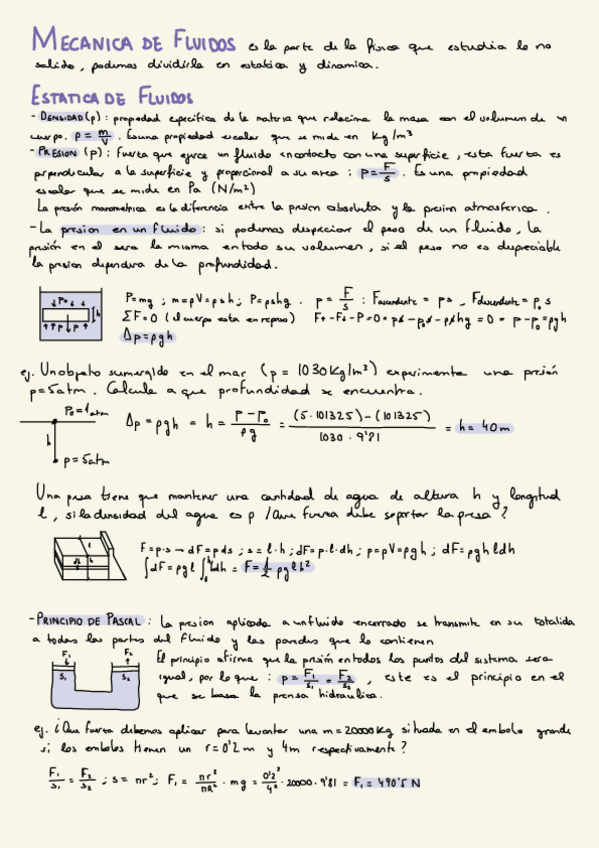 MECANICA DE FLUIDOS es la parte de la fisica que estudia lo no
solido, podemos dividirla en estatica y dinamica.
ESTATICA DE FLUIDOS
- DENSIDAD (ρ) : propiedad especifica de la materia que relaciona la masa con el volumen de un
cuerpo. ρ = m/V . Es una propiedad escalar que se mide en Kg/m³
- PRESION (p) : fuerza que ejerce un fluido en contacto con una superficie, esta fuerza es
perpendicular a la superficie y proporcional a su area : p = F/S . Es una propiedad
escalar que se mide en Pa (N/m²)
La presión manometrica es la diferencia entre la presion absoluta y la presion atmosferica .
- La presion en un fluido : si podemos despreciar el peso de un fluido, la
presión en el sera la misma en todo su volumen, si el peso no es despreciable
la presion dependera de la profundidad.
P = mg ; m = ρV = ρsh ; P = ρshg . p = F/S : Fascendente = ps _ Fdescendente = p₀s
ΣF = 0 (el cuerpo esta en reposo) F↑ - F↓ - P = 0 = ps - p₀s - ρshg = 0 = p - p₀ = ρgh
Δp = ρgh
ej. Un objeto sumergido en el mar (ρ = 1030 Kg/m³) experimenta una presión
p = 5 atm . Calcula a que profundidad se encuentra.
P₀ = 1 atm
h
p = 5 atm
Δp = ρgh = h = (p - p₀)/ρg = ((5 · 101325) - (101325))/(1030 · 9'81) = h = 40 m
Una presa tiene que mantener una cantidad de agua de altura h y longitud
l , si la densidad del agua es ρ ¿Que fuerza debe soportar la presa ?
F = p·s → dF = p ds ; s = l·h ; dF = p·l·dh ; p = ρV = ρgh ; dF = ρgh l dh
∫dF = ρgl ∫₀ʰ h dh = F = 1/2 ρglh²
- PRINCIPIO DE PASCAL : La presion aplicada a un fluido encerrado se transmite en su totalida
a todas las partes del fluido y las paredes que lo contienen
F₁ F₂
S₁ S₂
El principio afirma que la presión en todos los puntos del sistema sera
igual, por lo que : p = F₁/S₁ = F₂/S₂ , este es el principio en el
que se basa la prensa hidraulica.
ej. ¿Que fuerza debemos aplicar para levantar una m = 20000 Kg situada en el embolo grande
si los embolos tienen un r = 0'2 m y 4m respectivamente ?
F₁/S₁ = F₂/S₂ ; s = πr² ; F₁ = πr²/πR² · mg = 0'2²/4² · 20000 · 9'81 = F₁ = 490'5 N